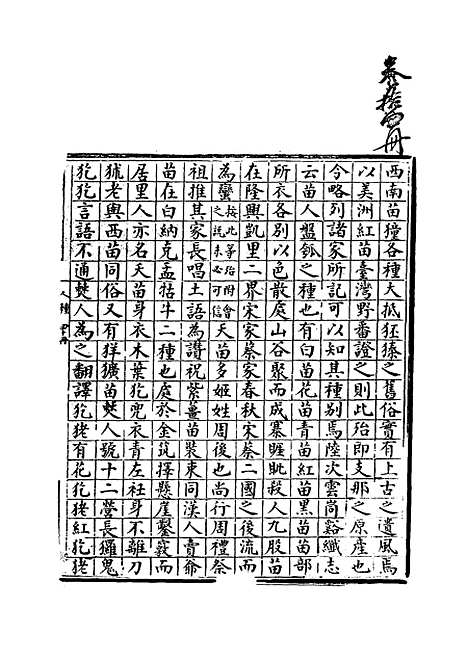 卷拾四冊
西南苗獞各種大抵狉獉之舊俗實有上古之遺風焉
以美洲紅苗臺灣野番證之則此殆即支那之原產也
今略列諸家所記可以知其種別焉陸次雲峒谿纖志
云苗人盤瓠之種也有白苗花苗青苗紅苗黑苗苗部
所衣各別以色散處山谷聚而成寨睚眦殺人九股苗
在隆興凱里二界宋家蔡家春秋宋蔡二國之後流而
為蠻按此等殆附會之說未必可信天苗多姬姓周後也尚行周禮祭
祖推其家長唱土語為讚祝紫薑苗裝束同漢人賣爺
苗在白納克孟牯牛二種也處於金筑擇懸崖鑿竅而
居里人亦名天苗身衣木葉狇兜衣青左衽身不離刀
㺐老與西苗同俗又有𤞑獚苗僰人號十二營長玀鬼
犵狫言語不通僰人為之翻譯犵狫有花犵狫紅犵狫
人種